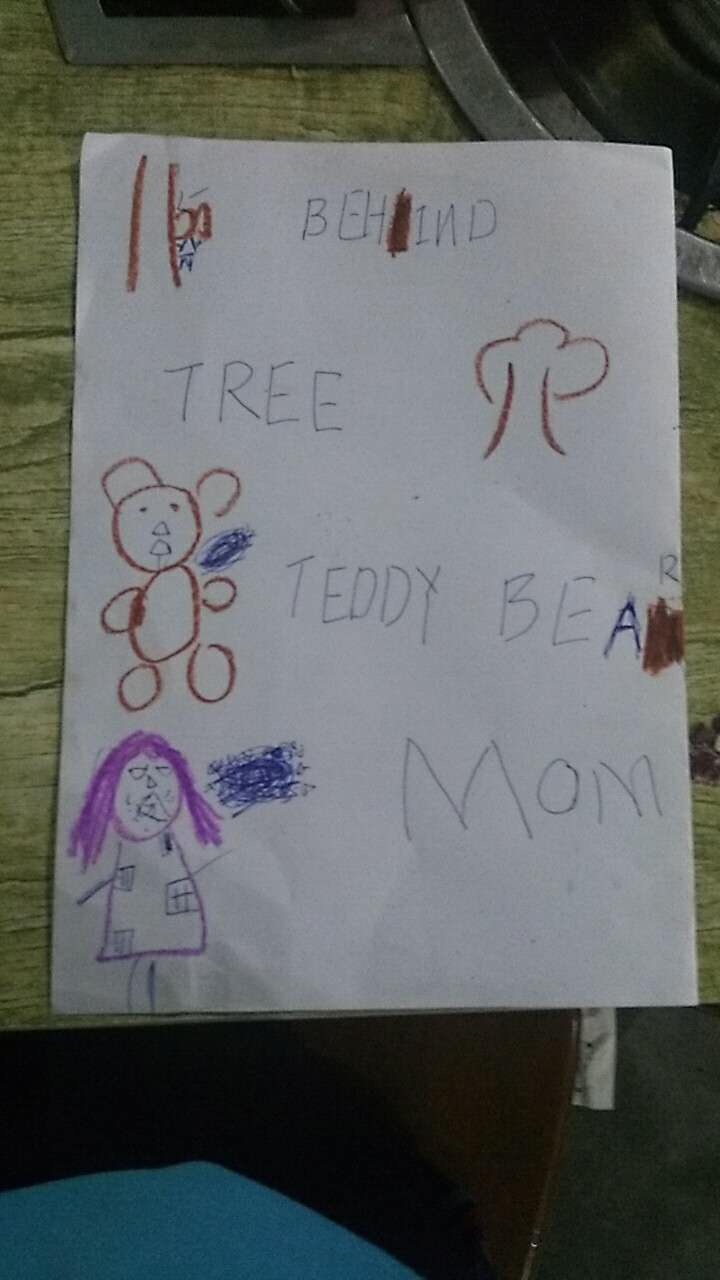 BEHIND
TREE
TEDDY BEAR
MOM